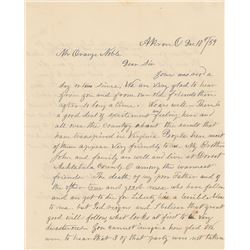 Akron, O Dec 10th /59
Mr Orange Noble
Dear Sir
Yours was rec'd a
day or two since. We are very glad to hear
from you and from our old friends there
after so long a time. We are well. There is
a good deal of excitement feeling here and
all over this country about the events that
have transpired in Virginia. People even most
of them appear very friendly to me. My Brother
John and family are well and live at Dorset
Ashtabula County O among the warmest
friends. The death of my poor Father and of
the other true and good men who have fallen
and are yet to die for Liberty is a terrible blow
to me. But God reigns and I believe that great
good will follow what looks at first so very
disasterous. You cannot imagine how glad we
were to hear that 3 of that party were not taken